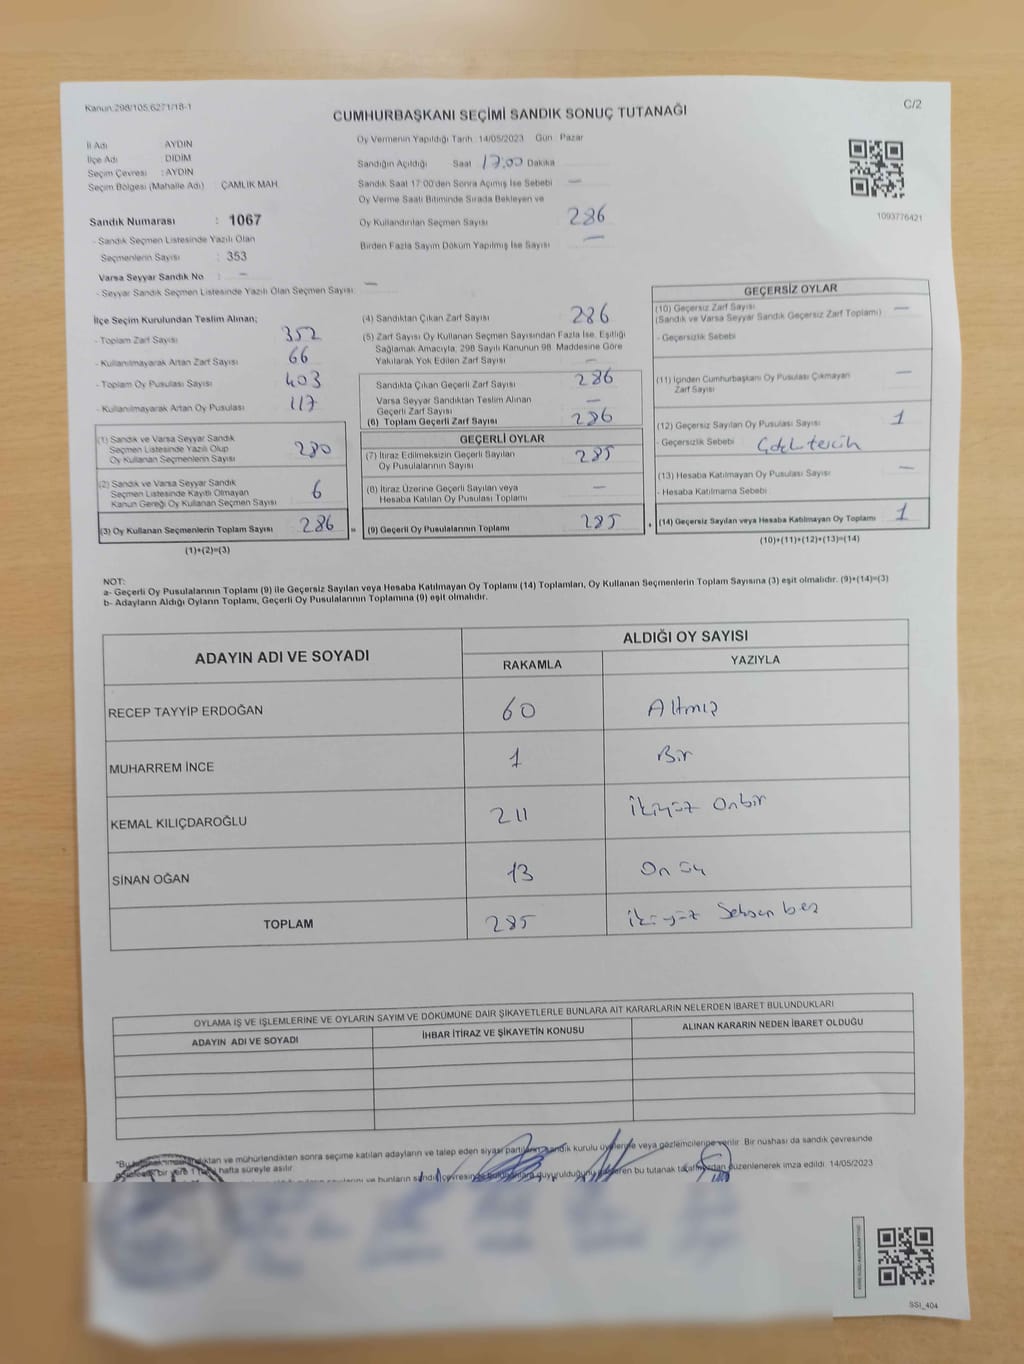 Kanun:298/105,6271/18-1
C/2
CUMHURBAŞKANI SEÇİMİ SANDIK SONUÇ TUTANAĞI
İl Adı AYDIN
İlçe Adı DİDİM
Seçim Çevresi : AYDIN
Seçim Bölgesi (Mahalle Adı) : ÇAMLIK MAH.
Sandık Numarası : 1067
- Sandık Seçmen Listesinde Yazılı Olan
Seçmenlerin Sayısı : 353
Varsa Seyyar Sandık No : —
- Seyyar Sandık Seçmen Listesinde Yazılı Olan Seçmen Sayısı: —
Oy Vermenin Yapıldığı Tarih: 14/05/2023 Gün : Pazar
Sandığın Açıldığı Saat 17.00 Dakika
Sandık Saat 17:00'den Sonra Açmış İse Sebebi —
Oy Verme Saati Bitiminde Sırada Bekleyen ve
Oy Kullandırılan Seçmen Sayısı 286
Birden Fazla Sayım Döküm Yapılmış İse Sayısı —
1093776421
İlçe Seçim Kurulundan Teslim Alınan;
- Toplam Zarf Sayısı 352
- Kullanılmayarak Artan Zarf Sayısı 66
- Toplam Oy Pusulası Sayısı 403
- Kullanılmayarak Artan Oy Pusulası 117
(1) Sandık ve Varsa Seyyar Sandık
Seçmen Listesinde Yazılı Olup
Oy Kullanan Seçmenlerin Sayısı 280
(2) Sandık ve Varsa Seyyar Sandık
Seçmen Listesinde Kayıtlı Olmayan
Kanun Gereği Oy Kullanan Seçmen Sayısı 6
(3) Oy Kullanan Seçmenlerin Toplam Sayısı 286 =
(1)+(2)=(3)
(4) Sandıktan Çıkan Zarf Sayısı 286
(5) Zarf Sayısı Oy Kullanan Seçmen Sayısından Fazla İse, Eşitliği
Sağlamak Amacıyla, 298 Sayılı Kanunun 98. Maddesine Göre
Yakılarak Yok Edilen Zarf Sayısı —
Sandıkta Çıkan Geçerli Zarf Sayısı 286
Varsa Seyyar Sandıktan Teslim Alınan
Geçerli Zarf Sayısı —
(6) Toplam Geçerli Zarf Sayısı 286
GEÇERLİ OYLAR
(7) İtiraz Edilmeksizin Geçerli Sayılan
Oy Pusulalarının Sayısı 285
(8) İtiraz Üzerine Geçerli Sayılan veya
Hesaba Katılan Oy Pusulası Toplamı —
(9) Geçerli Oy Pusulalarının Toplamı 285 +
GEÇERSİZ OYLAR
(10) Geçersiz Zarf Sayısı —
(Sandık ve Varsa Seyyar Sandık Geçersiz Zarf Toplamı)
- Geçersizlik Sebebi
(11) İçinden Cumhurbaşkanı Oy Pusulası Çıkmayan —
Zarf Sayısı
(12) Geçersiz Sayılan Oy Pusulası Sayısı 1
- Geçersizlik Sebebi Çok tercih
(13) Hesaba Katılmayan Oy Pusulası Sayısı —
- Hesaba Katılmama Sebebi
(14) Geçersiz Sayılan veya Hesaba Katılmayan Oy Toplamı 1
(10)+(11)+(12)+(13)=(14)
NOT:
a- Geçerli Oy Pusulalarının Toplamı (9) ile Geçersiz Sayılan veya Hesaba Katılmayan Oy Toplamı (14) Toplamları, Oy Kullanan Seçmenlerin Toplam Sayısına (3) eşit olmalıdır. (9)+(14)=(3)
b- Adayların Aldığı Oyların Toplamı, Geçerli Oy Pusulalarının Toplamına (9) eşit olmalıdır.
ADAYIN ADI VE SOYADI
ALDIĞI OY SAYISI
RAKAMLA YAZIYLA
RECEP TAYYİP ERDOĞAN 60 Altmış
MUHARREM İNCE 1 Bir
KEMAL KILIÇDAROĞLU 211 İkiyüz Onbir
SİNAN OĞAN 13 On üç
TOPLAM 285 ikiyüz Seksen beş
OYLAMA İŞ VE İŞLEMLERİNE VE OYLARIN SAYIM VE DÖKÜMÜNE DAİR ŞİKAYETLERLE BUNLARA AİT KARARLARIN NELERDEN İBARET BULUNDUKLARI
ADAYIN ADI VE SOYADI İHBAR İTİRAZ VE ŞİKAYETİN KONUSU ALINAN KARARIN NEDEN İBARET OLDUĞU
mühürlendikten sonra seçime katılan adayların ve talep eden siyasi sandık kurulu veya gözlemcilerine verilir. Bir nüshası da sandık çevresinde
bir yere 1 hafta süreyle asılır.
ve bunların sandık çevresinde bu tutanak tarafımızdan düzenlenerek imza edildi. 14/05/2023
SSI_404